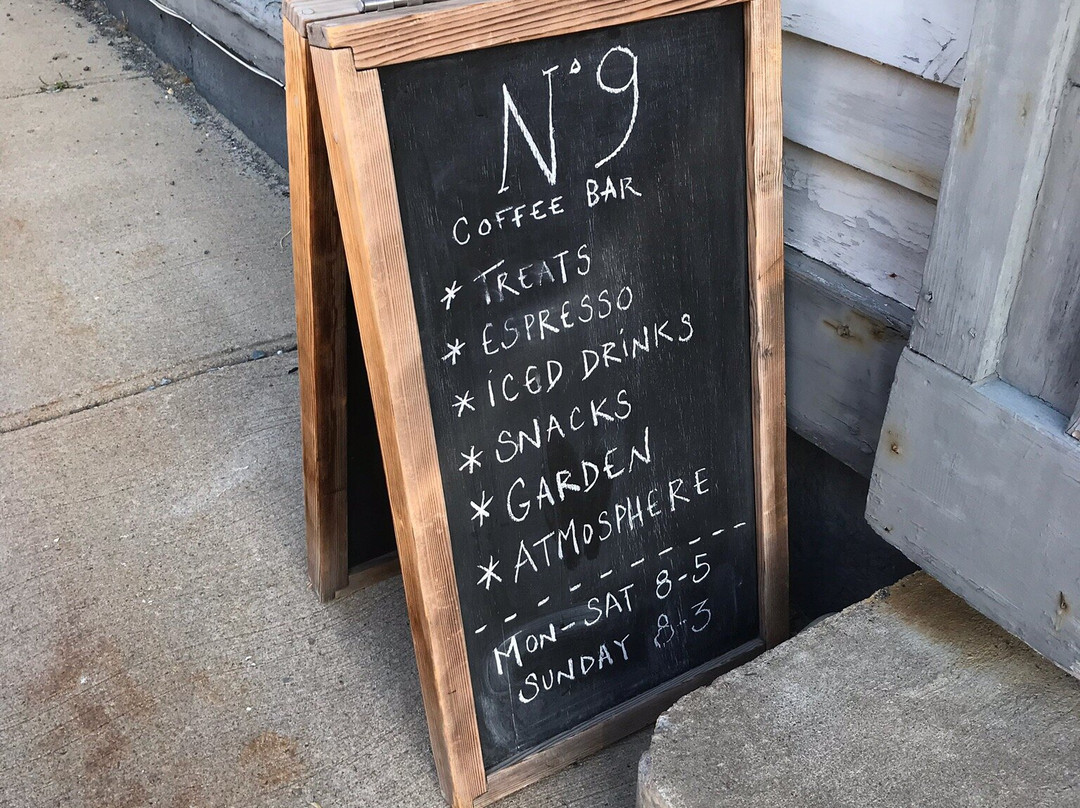 N° 9
COFFEE BAR
* TREATS
* ESPRESSO
* ICED DRINKS
* SNACKS
* GARDEN
* ATMOSPHERE
MON-SAT 8-5
SUNDAY 8-3